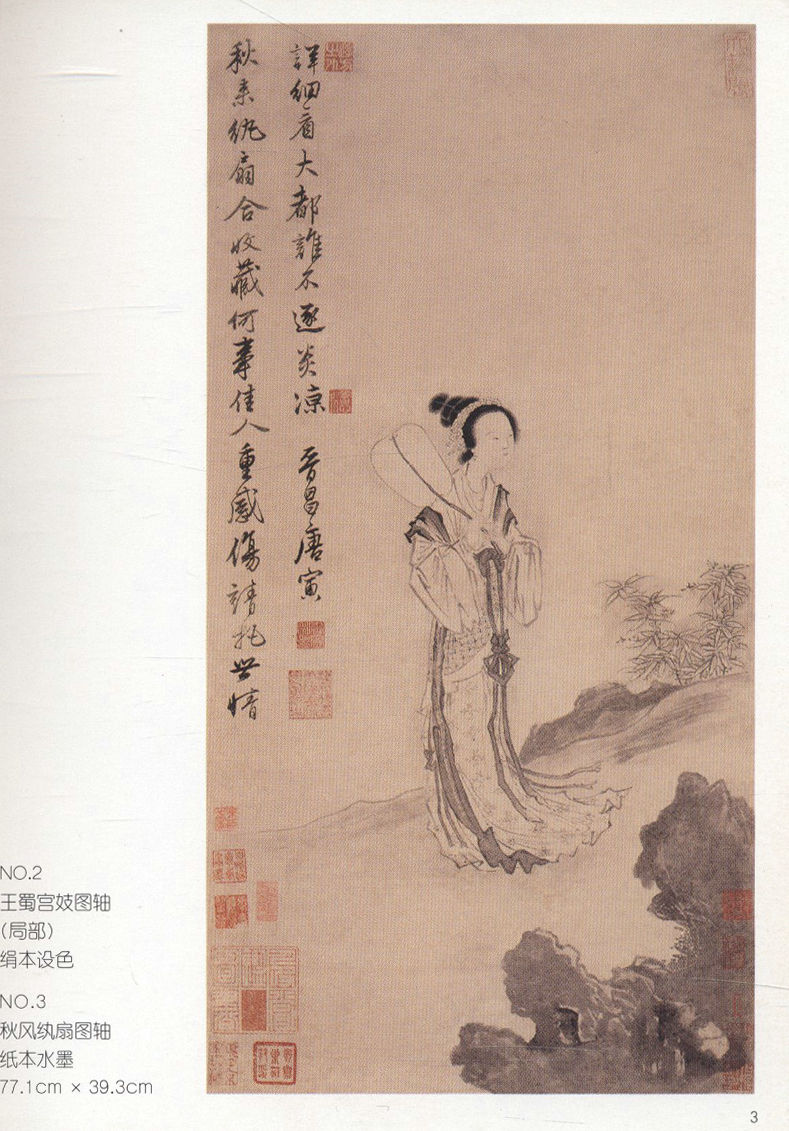 秋來紈扇合收藏何事佳人重感傷請把世情
詳細看大都誰不逐炎凉 晉昌唐寅
NO.2
王蜀宫妓图轴
(局部)
绢本设色
NO.3
秋风纨扇图轴
纸本水墨
77.1cm × 39.3cm
3